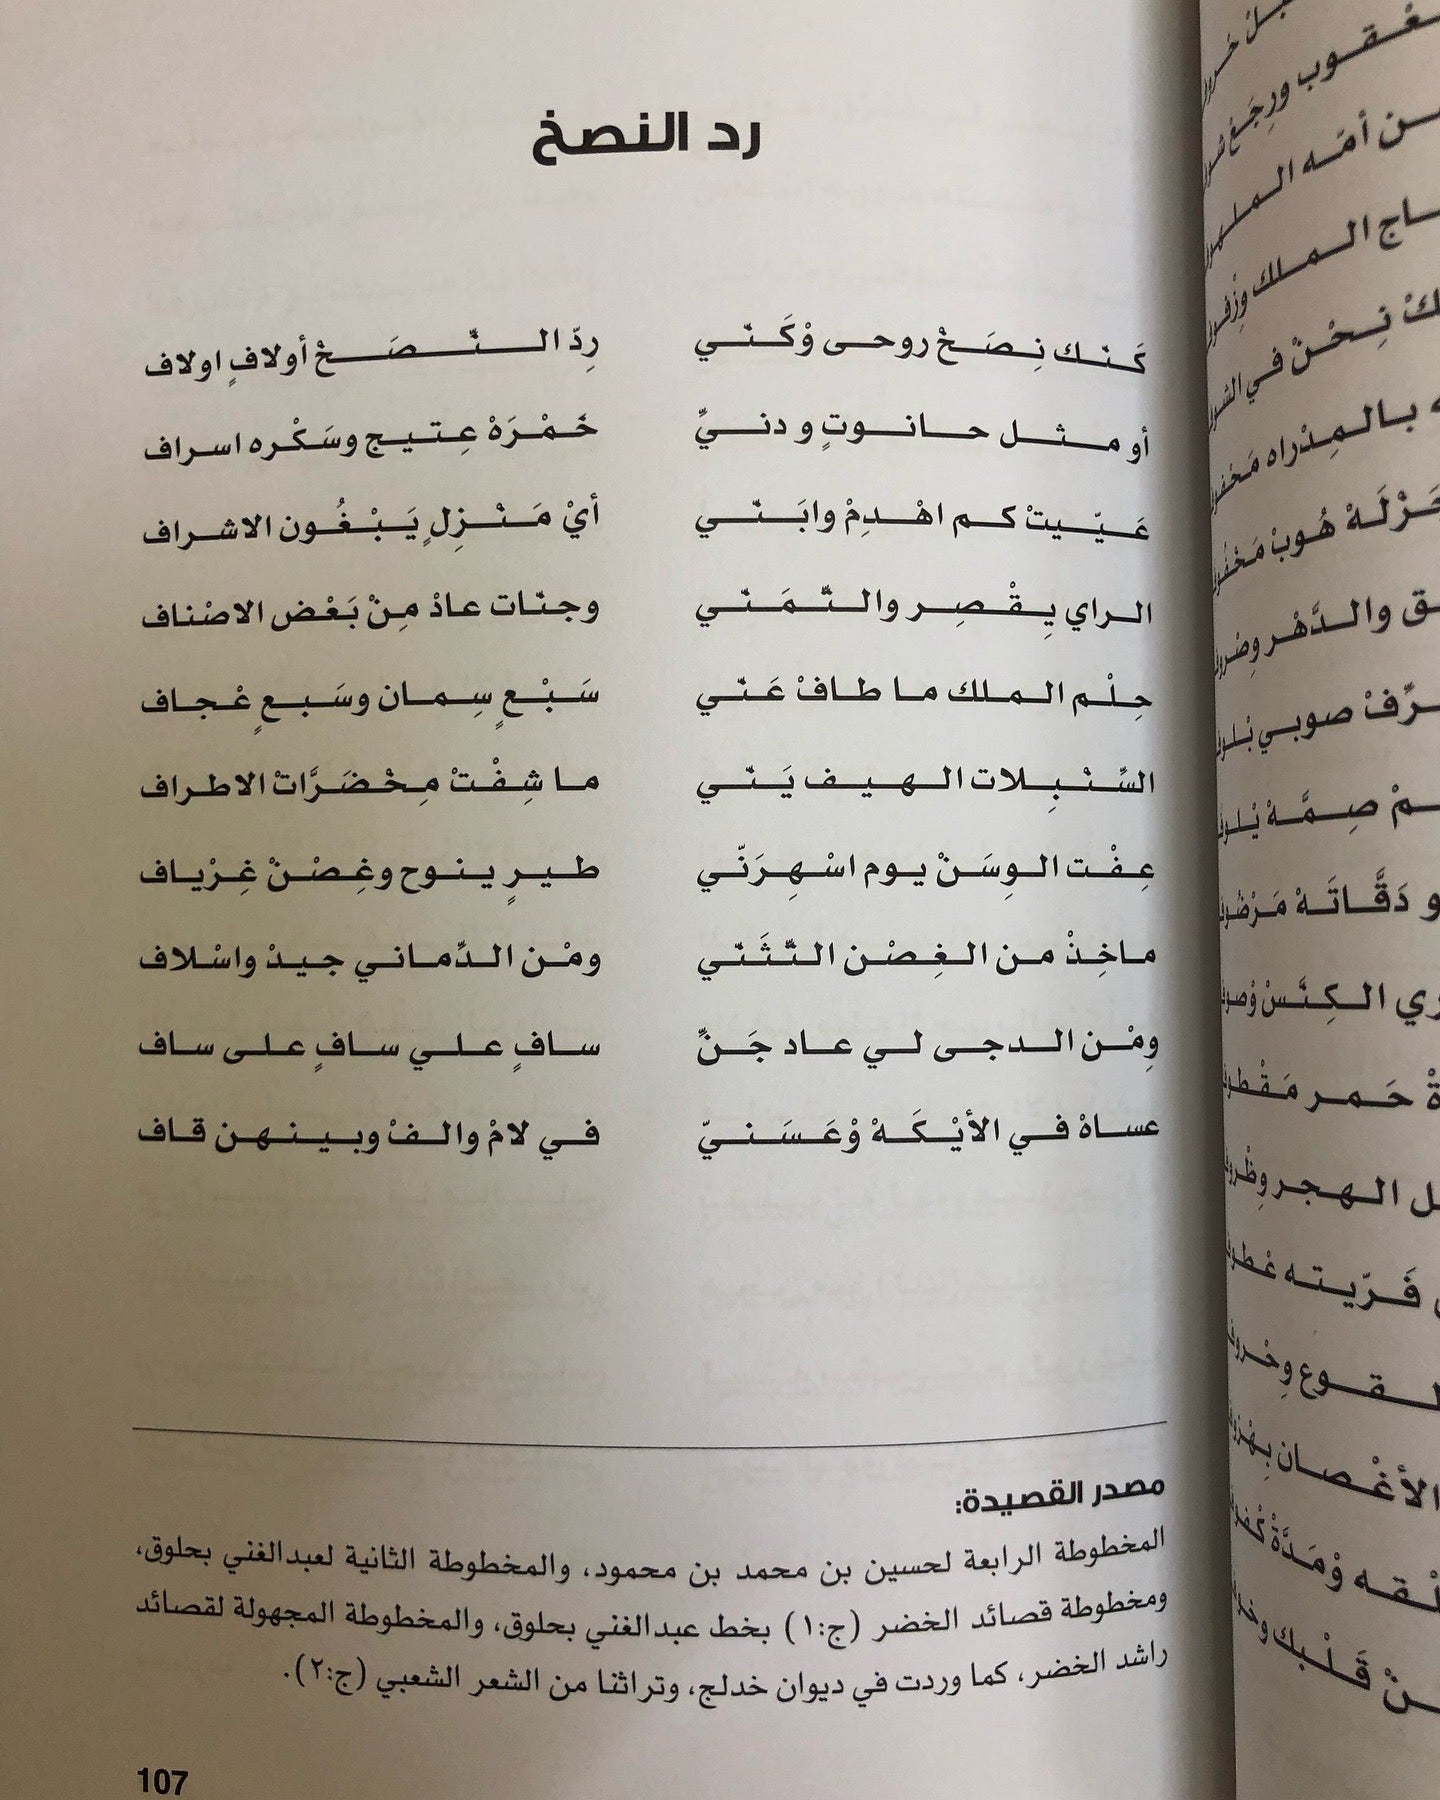 رد النصخ
كَنّك نِصَخْ روحى وْكَنّي رِدّ النّصَخْ أولافٍ اولاف
أو مثل حانوتٍ و دنيِّ خَمْرَهْ عِتيج وسَكْره اسراف
عَيّيتْ كم اهْدِمْ وابَنّي أيْ مَنْزِلٍ يَبْغُون الاشراف
الراي يِقْصِر والتّمَنّي وجنّات عادْ مِنْ بَعْض الاصْناف
حِلْم الملك ما طافْ عَنّي سَبْعٍ سِمان وسَبعٍ عْجاف
السّنْبِلات الهيف يَنّي ما شِفْتْ مِخْضَرَّاتْ الاطراف
عِفْت الوِسَنْ يوم اسْهِرَنّي طيرٍ ينوح وغِصْنْ غِرْياف
ماخِذْ من الغِصْن التّثَنّي ومْن الدّماني جيدْ واسْلاف
ومْن الدجى لي عاد جَنِّ سافٍ علي سافٍ على ساف
عساهْ في الأيْكَهْ وْعَسَنيّ في لامْ والفْ وبينهن قاف
مصدر القصيدة:
المخطوطة الرابعة لحسين بن محمد بن محمود، والمخطوطة الثانية لعبدالغني بحلوق،
ومخطوطة قصائد الخضر (ج:١) بخط عبدالغني بحلوق، والمخطوطة المجهولة لقصائد
راشد الخضر، كما وردت في ديوان خدلج، وتراثنا من الشعر الشعبي (ج:٢).
107
ورِجَعْ
من أمّه
الملك وزْفو
نِحْنْ في
بالمِدْراه
هُوبْ
والدَّهْر
صوبي
صِمَّهْ
و دَقَّاتَهْ
الكِنَّسْ
حَمر
الهجر
فَرّيته
القوع
الأغْصان
وْمَدَّةْ
قَلْبك